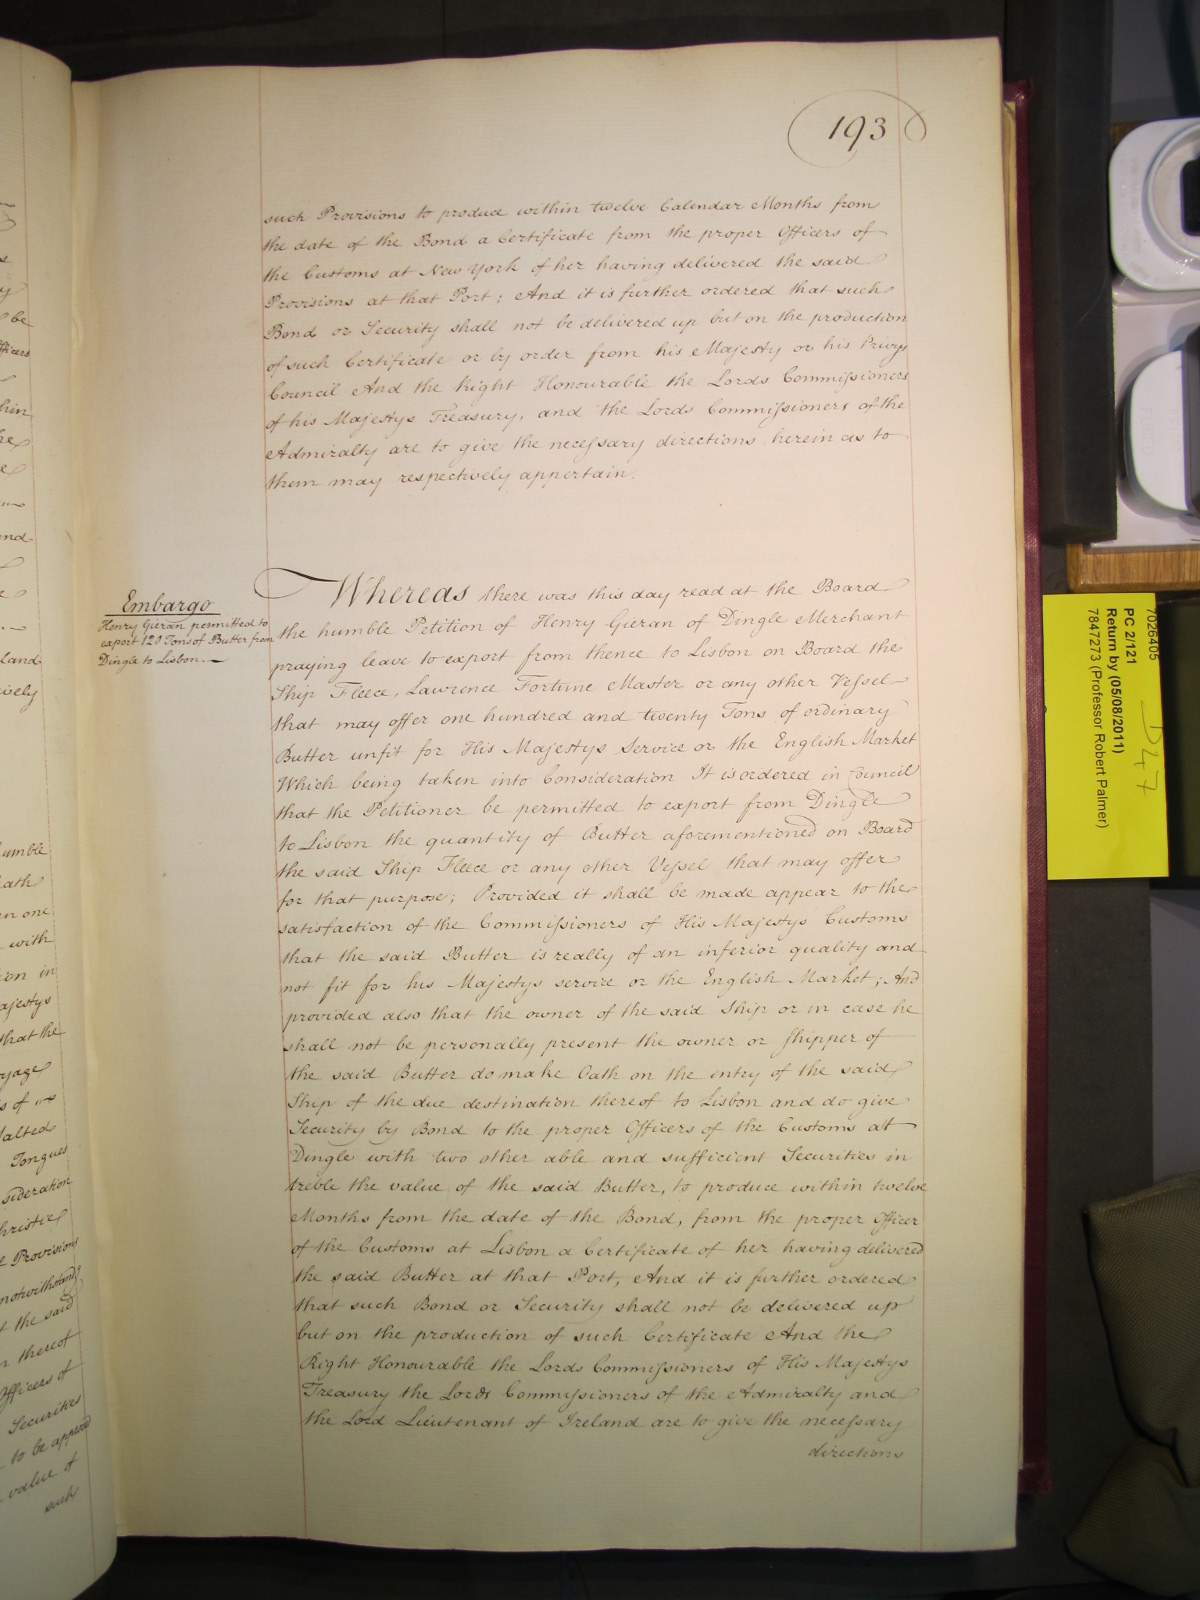 193
such Provisions to produce within twelve Calendar Months from
the date of the Bond a Certificate from the proper Officers of
the Customs at New York of her having delivered the said
Provisions at that Port; And it is further ordered that such
Bond or Security shall not be delivered up but on the production
of such Certificate or by order from his Majesty or his Privy
Council And the Right Honourable the Lords Commissioners
of his Majestys Treasury, and the Lords Commissioners of the
Admiralty are to give the necessary directions herein as to
them may respectively appertain.
Embargo
Henry Gieran permitted to
export 120 Tons of Butter from
Dingle to Lisbon.
Whereas there was this day read at the Board
the humble Petition of Henry Gieran of Dingle Merchant
praying leave to export from thence to Lisbon on Board the
Ship Fleece, Lawrence Fortune Master or any other Vessel
that may offer one hundred and twenty Tons of ordinary
Butter unfit for His Majestys Service or the English Market
Which being taken into Consideration It is ordered in Council
that the Petitioner be permitted to export from Dingle
to Lisbon the quantity of Butter aforementioned on Board
the said Ship Fleece or any other Vessel that may offer
for that purpose; Provided it shall be made appear to the
satisfaction of the Commissioners of His Majestys Customs
that the said Butter is really of an inferior quality and
not fit for his Majestys service or the English Market; And
provided also that the owner of the said Ship or in case he
shall not be personally present the owner or Shipper of
the said Butter do make Oath on the entry of the said
Ship of the due destination thereof to Lisbon and do give
Security by Bond to the proper Officers of the Customs at
Dingle with two other able and sufficient Securities in
treble the value of the said Butter, to produce within twelve
Months from the date of the Bond, from the proper Officer
of the Customs at Lisbon a Certificate of her having delivered
the said Butter at that Port, And it is further ordered
that such Bond or Security shall not be delivered up
but on the production of such Certificate And the
Right Honourable the Lords Commissioners of His Majestys
Treasury the Lords Commissioners of the Admiralty and
the Lord Lieutenant of Ireland are to give the necessary
directions
7026405
PC 2/121
Return by (05/08/2011)
7847273 (Professor Robert Palmer)
D47
be
and
with
Majestys
that the
of
Salted
Tongues
Provisions
the said
thereof
Officers of
Securities
to be approved
value of
such